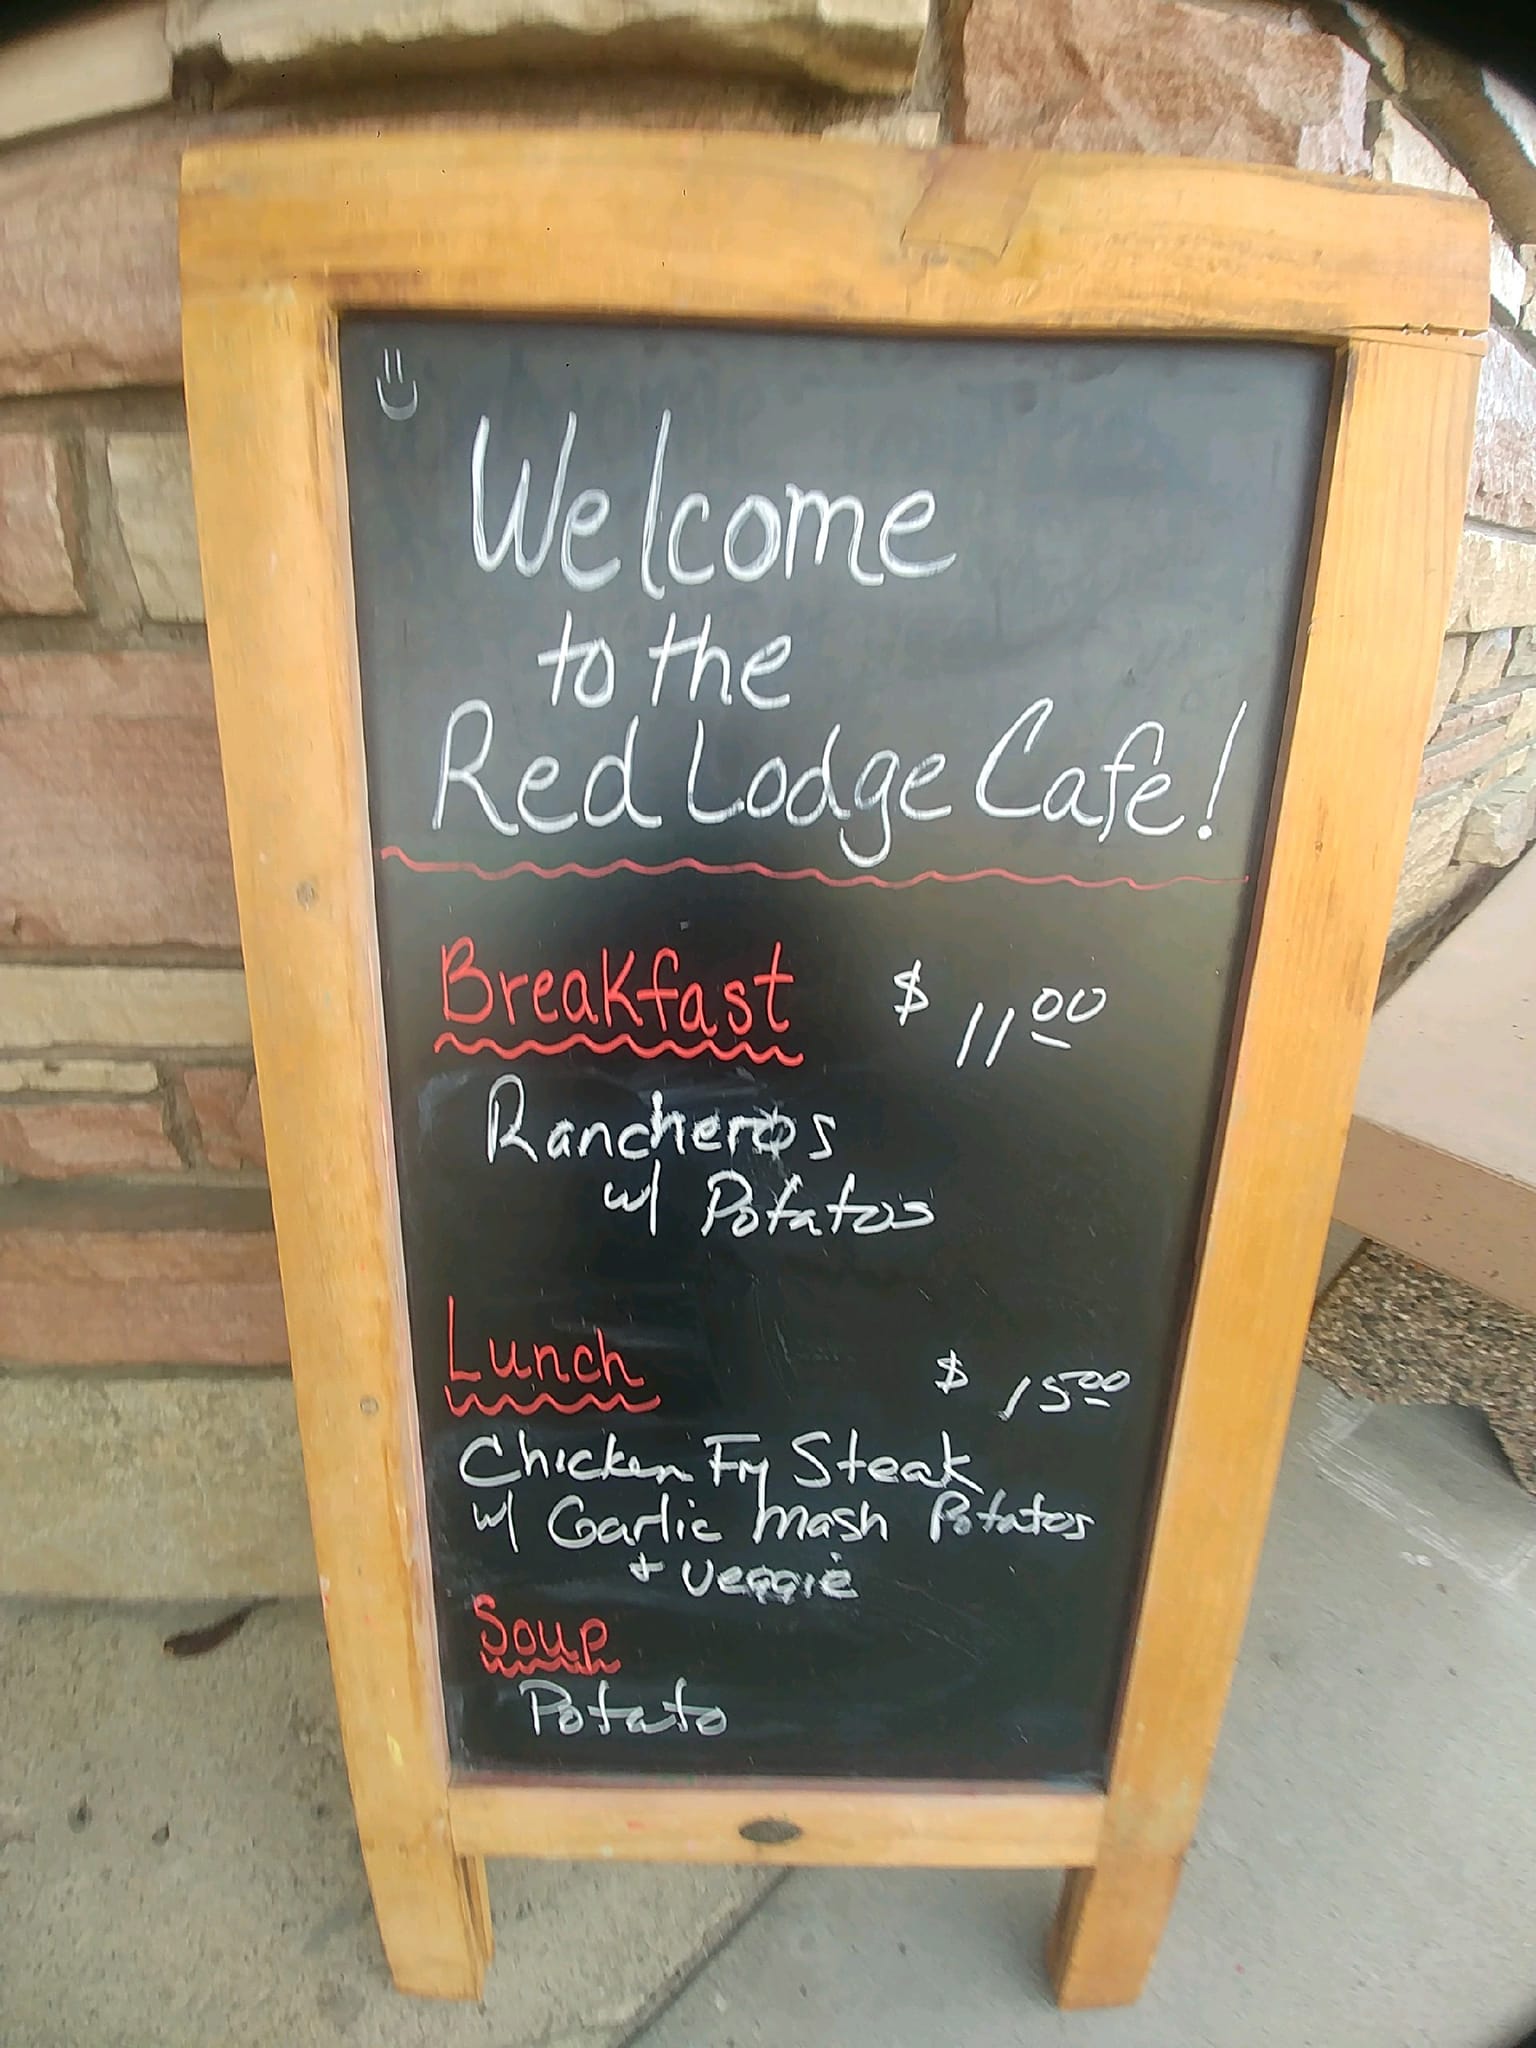 Welcome
to the
Red Lodge Cafe!
Breakfast $ 11.00
Rancheros
w/ Potatos
Lunch $ 15.00
Chicken Fry Steak
w/ Garlic Mash Potatos
+ Veggie
Soup
Potato